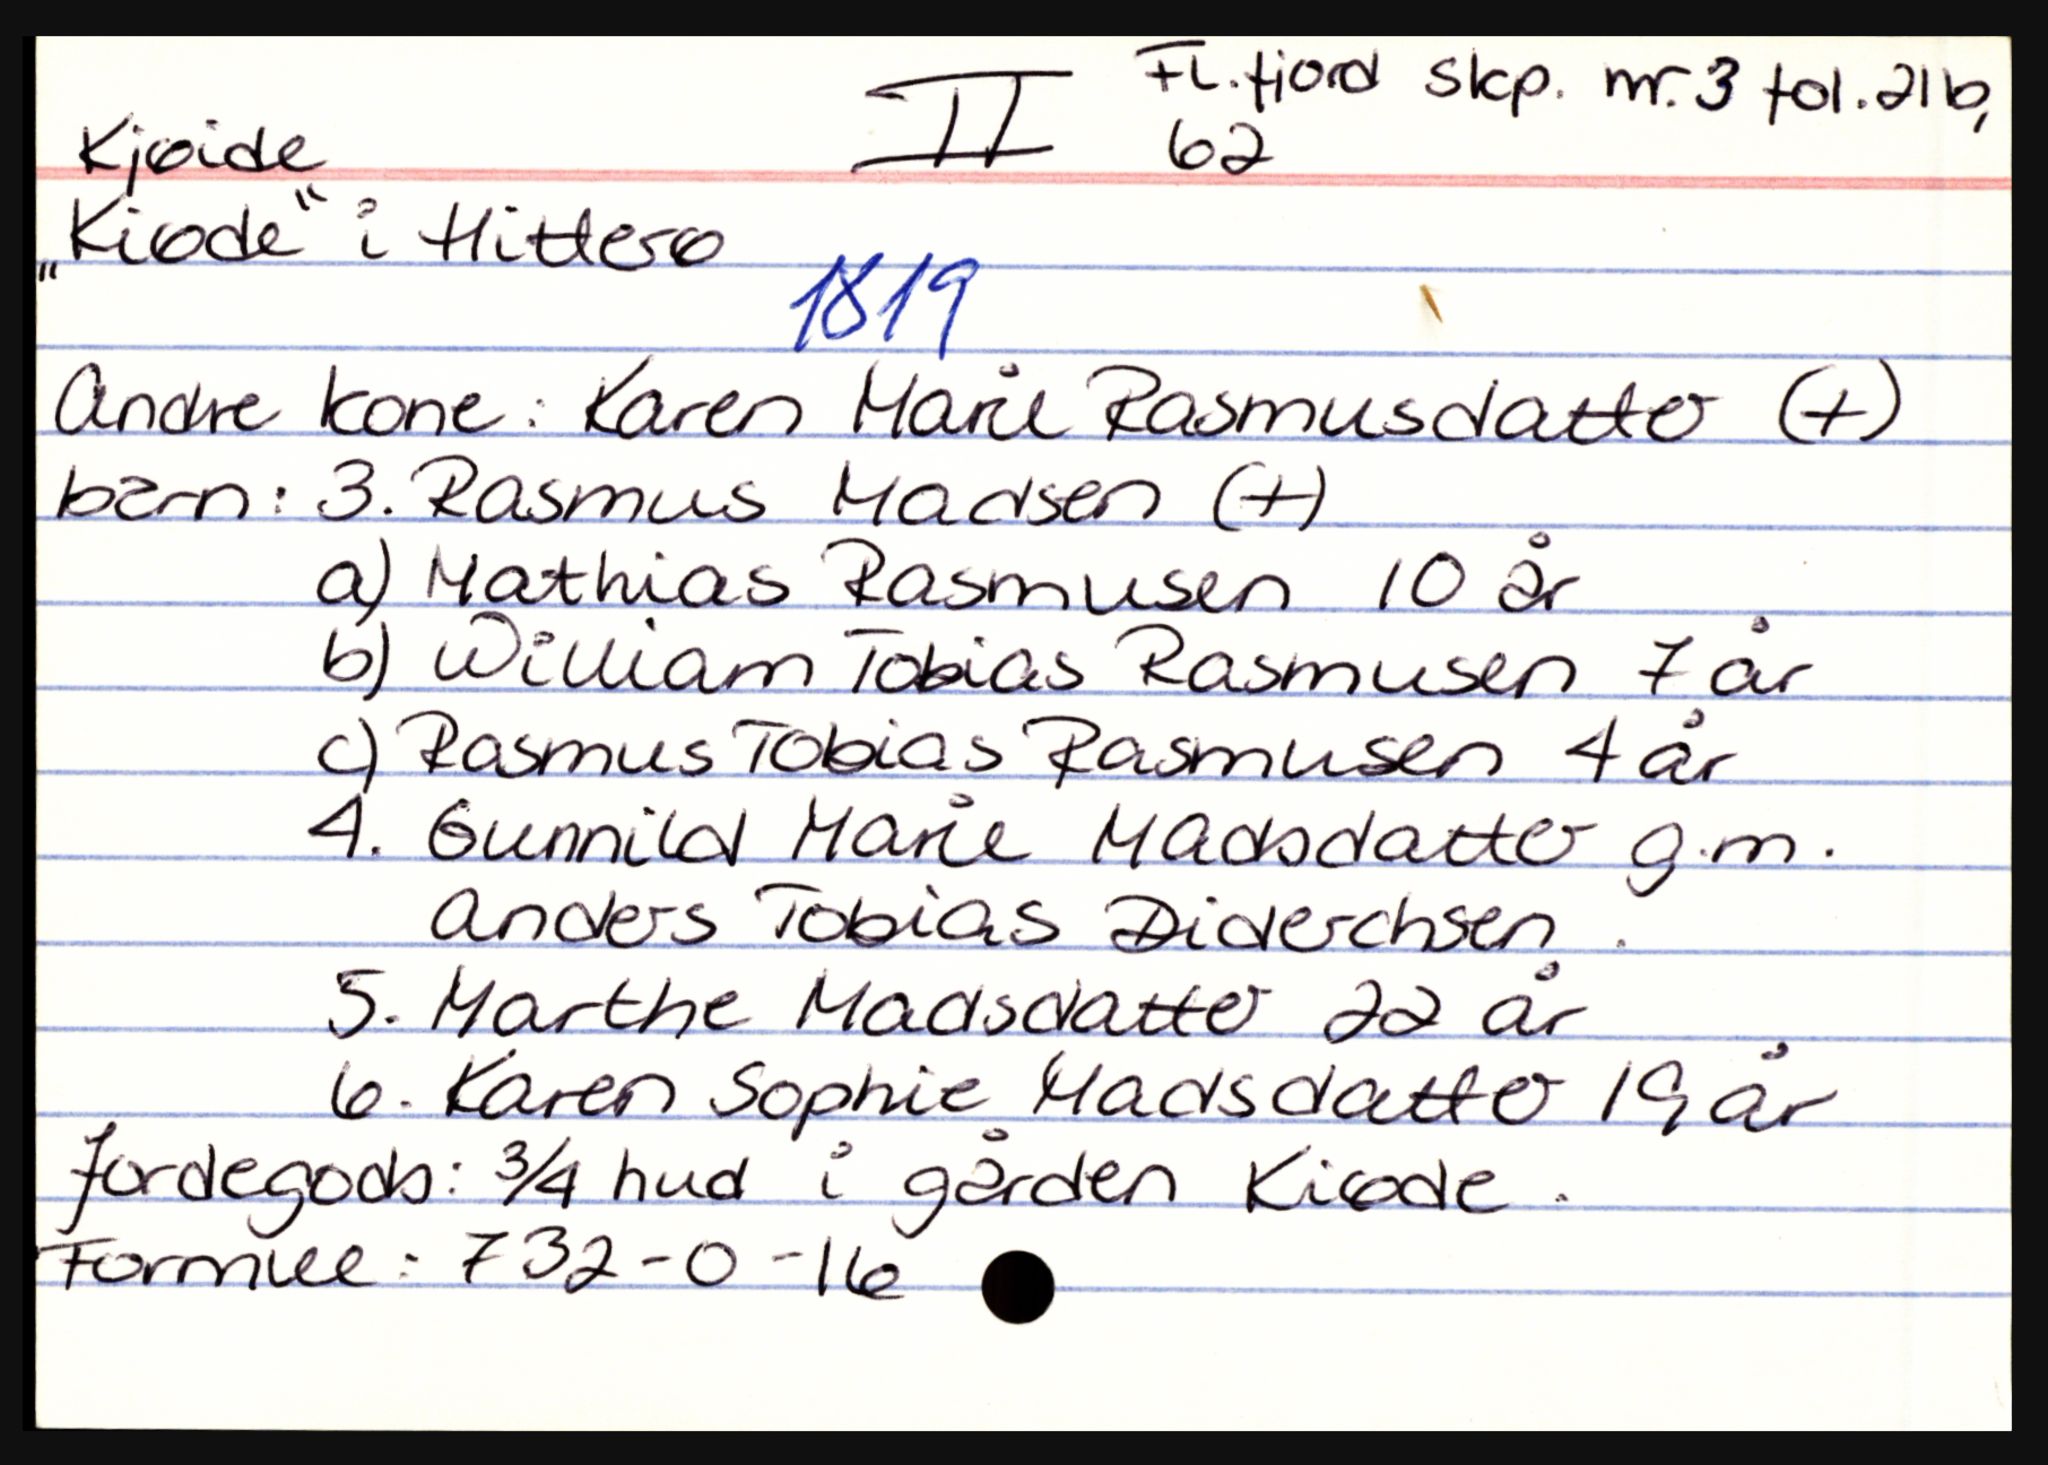 II Fl.fjord skp. nr. 3 fol. 21b,
62
Kjøide
„Kiøde“ i Hitterø
1819
Andre kone: Karen Marie Rasmusdatter (+)
barn: 3. Rasmus Madsen (+)
a) Mathias Rasmusen 10 år
b) William Tobias Rasmusen 7 år
c) Rasmus Tobias Rasmusen 4 år
4. Gunnild Marie Madsdatter g.m.
Anders Tobias Diderchsen.
5. Marthe Madsdatter 22 år
6. Karen Sophie Madsdatter 19 år
Jordegods: 3/4 hud i gården Kiøde.
Formue: 732-0-16